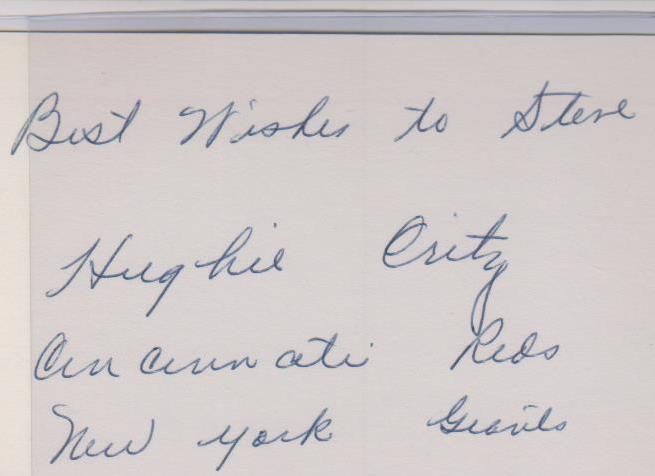 Best Wishes to Steve
Hughie Critz
Cincinnati Reds
New York Giants